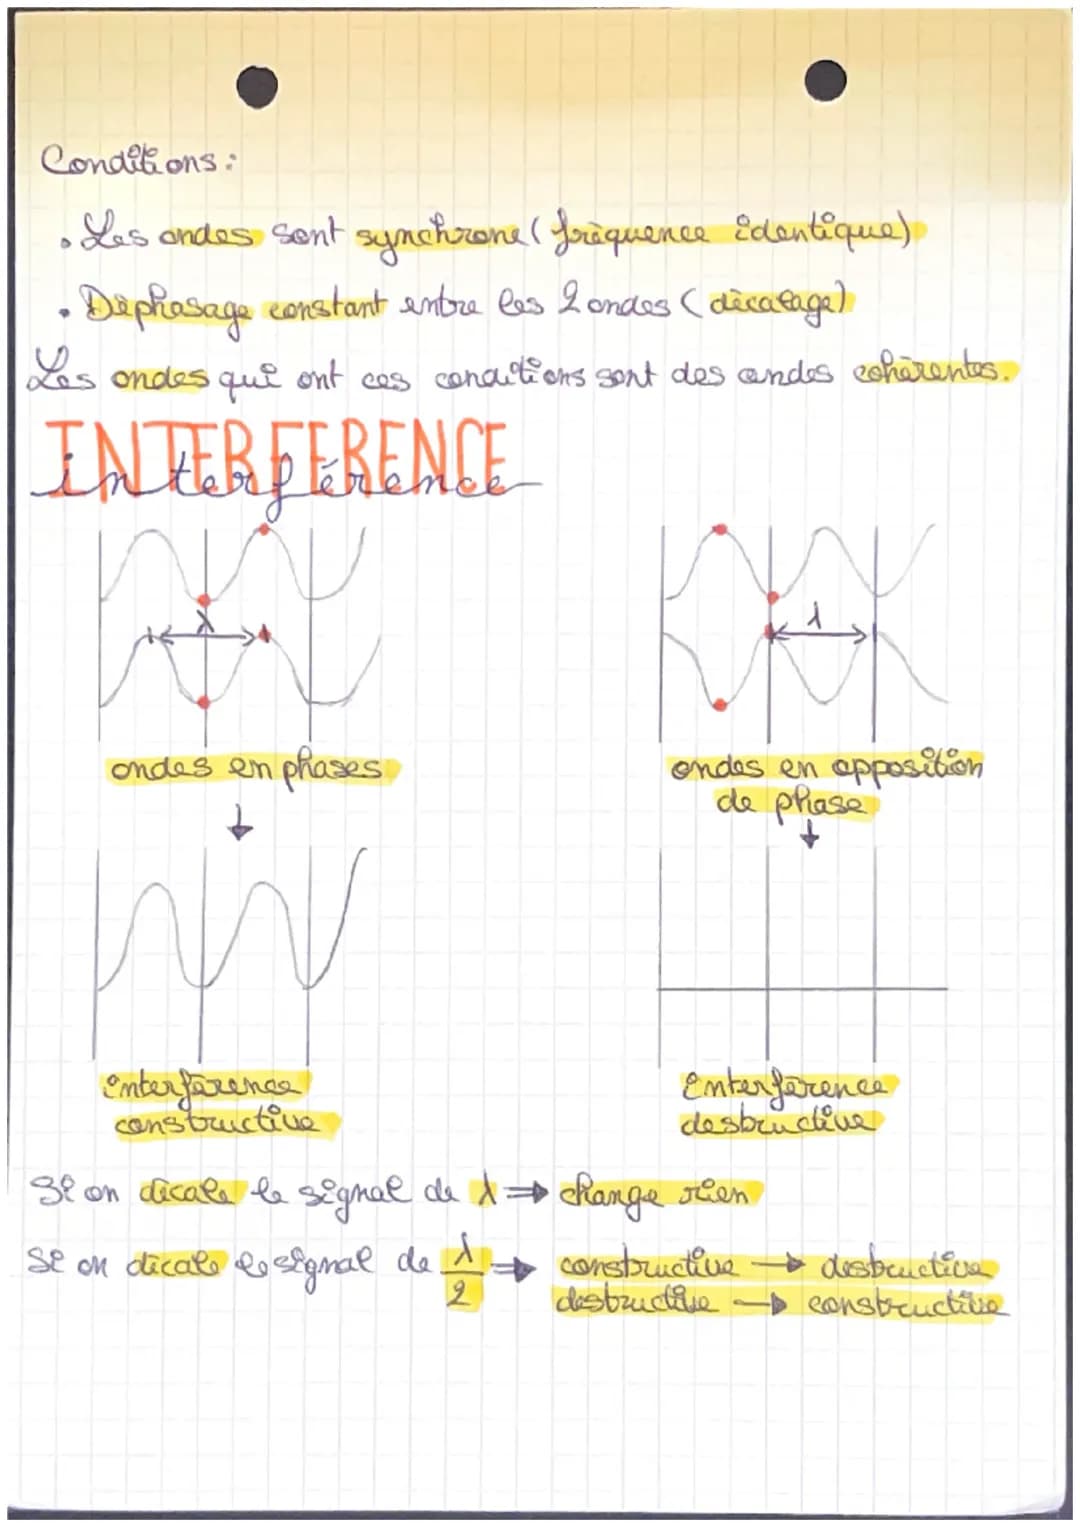 Conditions :
• Les ondes sont synchrone ( fréquence identique)
• Déphasage constant entre les 2 ondes ( décalage)
Les ondes qui ont ces conditions sont des ondes cohérentes.
INTERFERENCE
interférence
λ
λ
ondes en phases
ondes en opposition
de phase
interférence
constructive
Interférence
destructive
Si on décale le signal de λ ⇒ change rien
Si on décale le signal de λ/2 ⇒ constructive → destructive
destructive → constructive